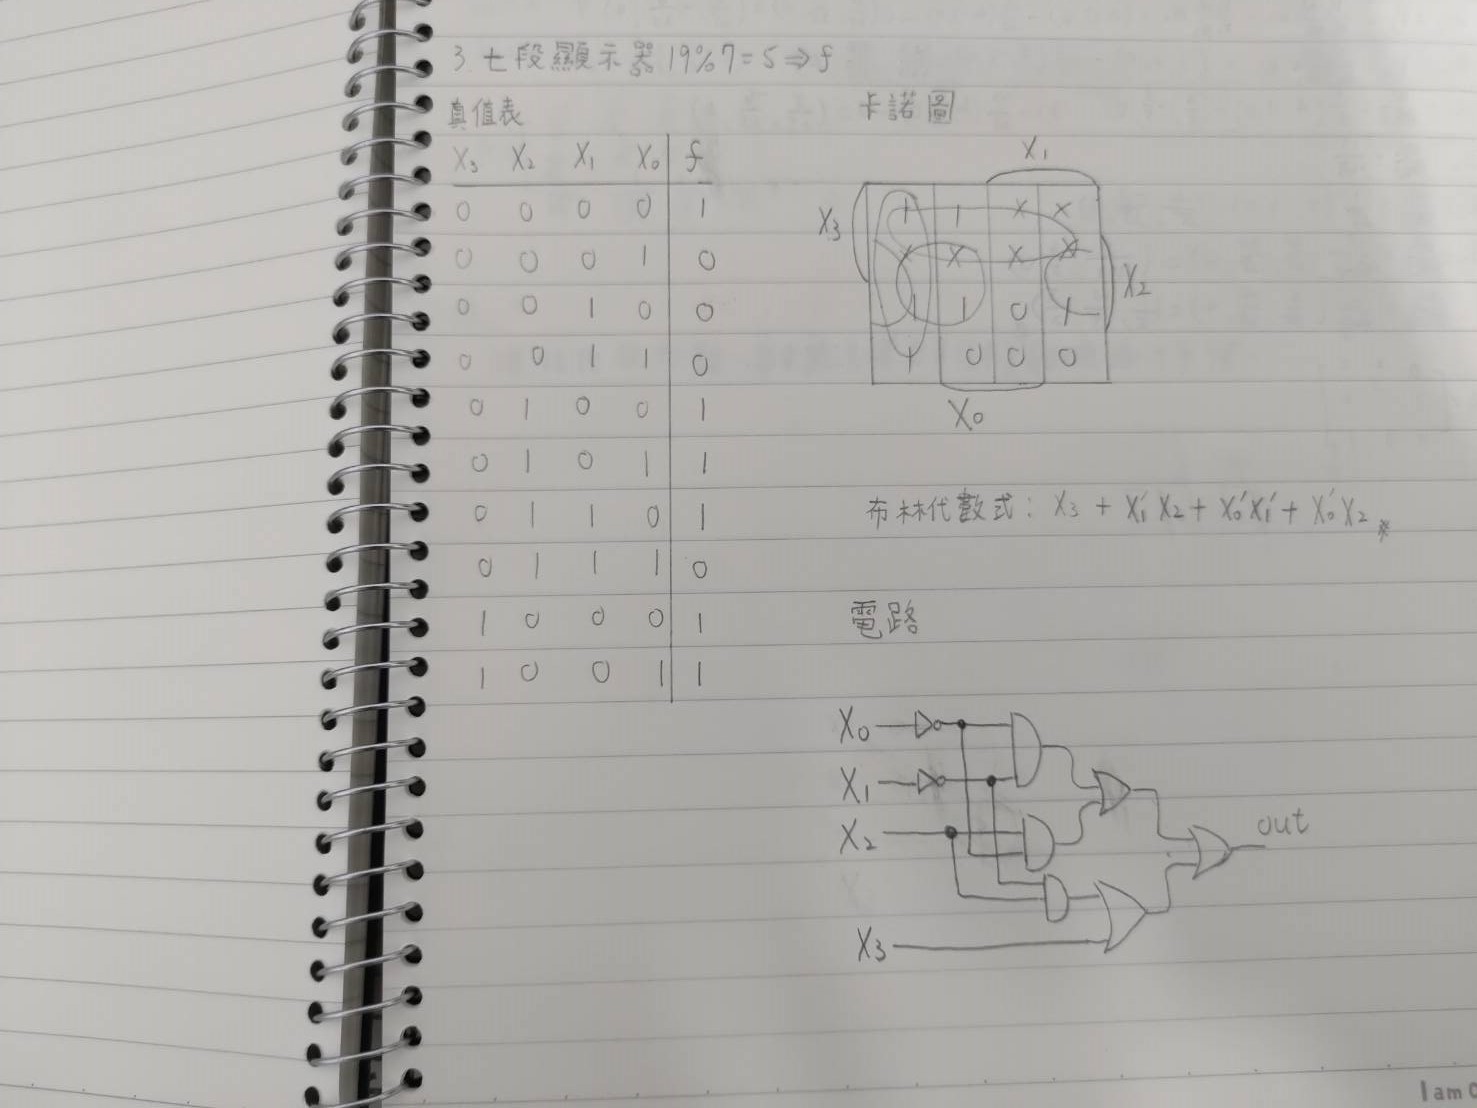 3 七段顯示器 19%7=5⇒f
真值表
X3 X2 X1 X0 f
0 0 0 0 1
0 0 0 1 0
0 0 1 0 0
0 0 1 1 0
0 1 0 0 1
0 1 0 1 1
0 1 1 0 1
0 1 1 1 0
1 0 0 0 1
1 0 0 1 1
卡諾圖
X1
X3
1 1 x x
x x x x
X2
1 1 0 1
1 0 0 0
X0
布林代數式: X3 + X1'X2 + X0'X1' + X0'X2
電路
X0
X1
X2
out
X3
I am